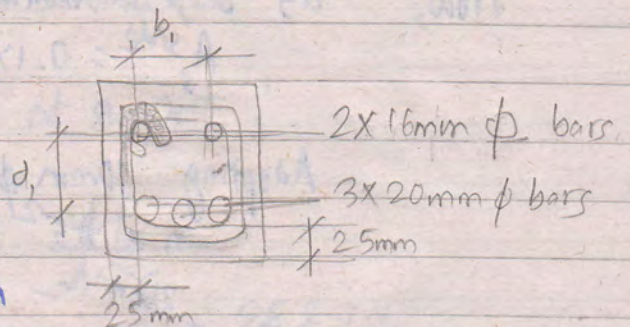 b₁
2X16mm ϕ bars.
d₁
3X20mm ϕ bars
25mm
25mm